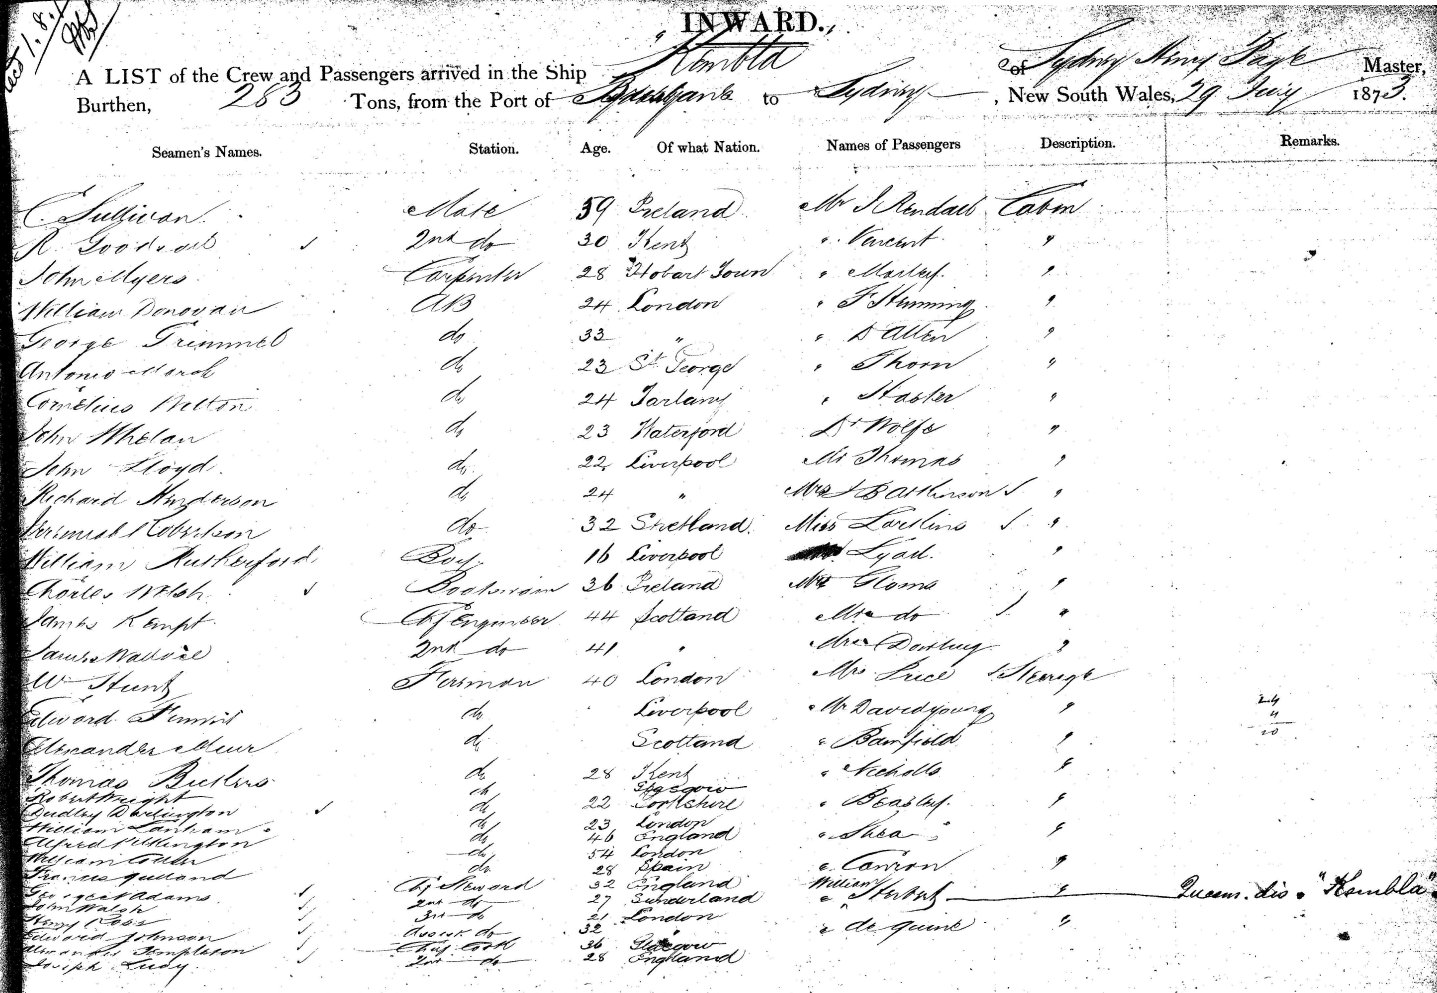 INWARD.
"Kembla
A LIST of the Crew and Passengers arrived in the Ship of Sydney Henry Page Master,
Burthen, 283 Tons, from the Port of Brisbane to Sydney, New South Wales, 29 July 1873.
Seamen's Names. Station. Age. Of what Nation. Names of Passengers Description. Remarks.
C. Sullivan Mate 59 Ireland Mr J. Rendall Cabin
R. 2nd do 30 Kent " Vincent "
John Myers Carpenter 28 Hobart Town " Morley "
William Donovan AB 24 London " F Hemming "
George Trimmel do 33 " " D Allen "
Antonio do 23 St George " Thorn "
Cornelius Welton do 24 " "
John Whelan do 23 Waterford Dr Wolfe "
John Lloyd do 22 Liverpool Mr Thomas "
Richard Henderson do 24 " Mrs "
Jeremiah Robertson do 32 Shetland Miss "
William Rutherford Boy 16 Liverpool "
Charles Welsh Boatswain 36 Ireland Mr "
James Kempt Chf Engineer 44 Scotland Mrs do "
James Wallace 2nd do 41 " "
Wm Hunt Fireman 40 London Mrs Steerage
Edward do Liverpool " Mr David Young " 24
4
20
Alexander Muir do Scotland " Bamfield "
Thomas Butlers do 28 Kent " Nicholls "
Robert Wright do Glasgow
Dudley Darlington do 22 Yorkshire " Beasley "
William Lanham do 23 London
Alfred Pilkington do 46 England " Shea "
William do 54 London
Francis do 28 Spain " "
George Adams Chf Steward 32 England William Herbert " Queens. dis. "Kembla"
John Walsh 2nd do 27 Sunderland
Henry Ross 3rd do 21 London " de quine "
Edward Johnson Assist do 32 "
Alexander Templeton Chief Cook 36 Glasgow
Joseph 2nd do 28 England